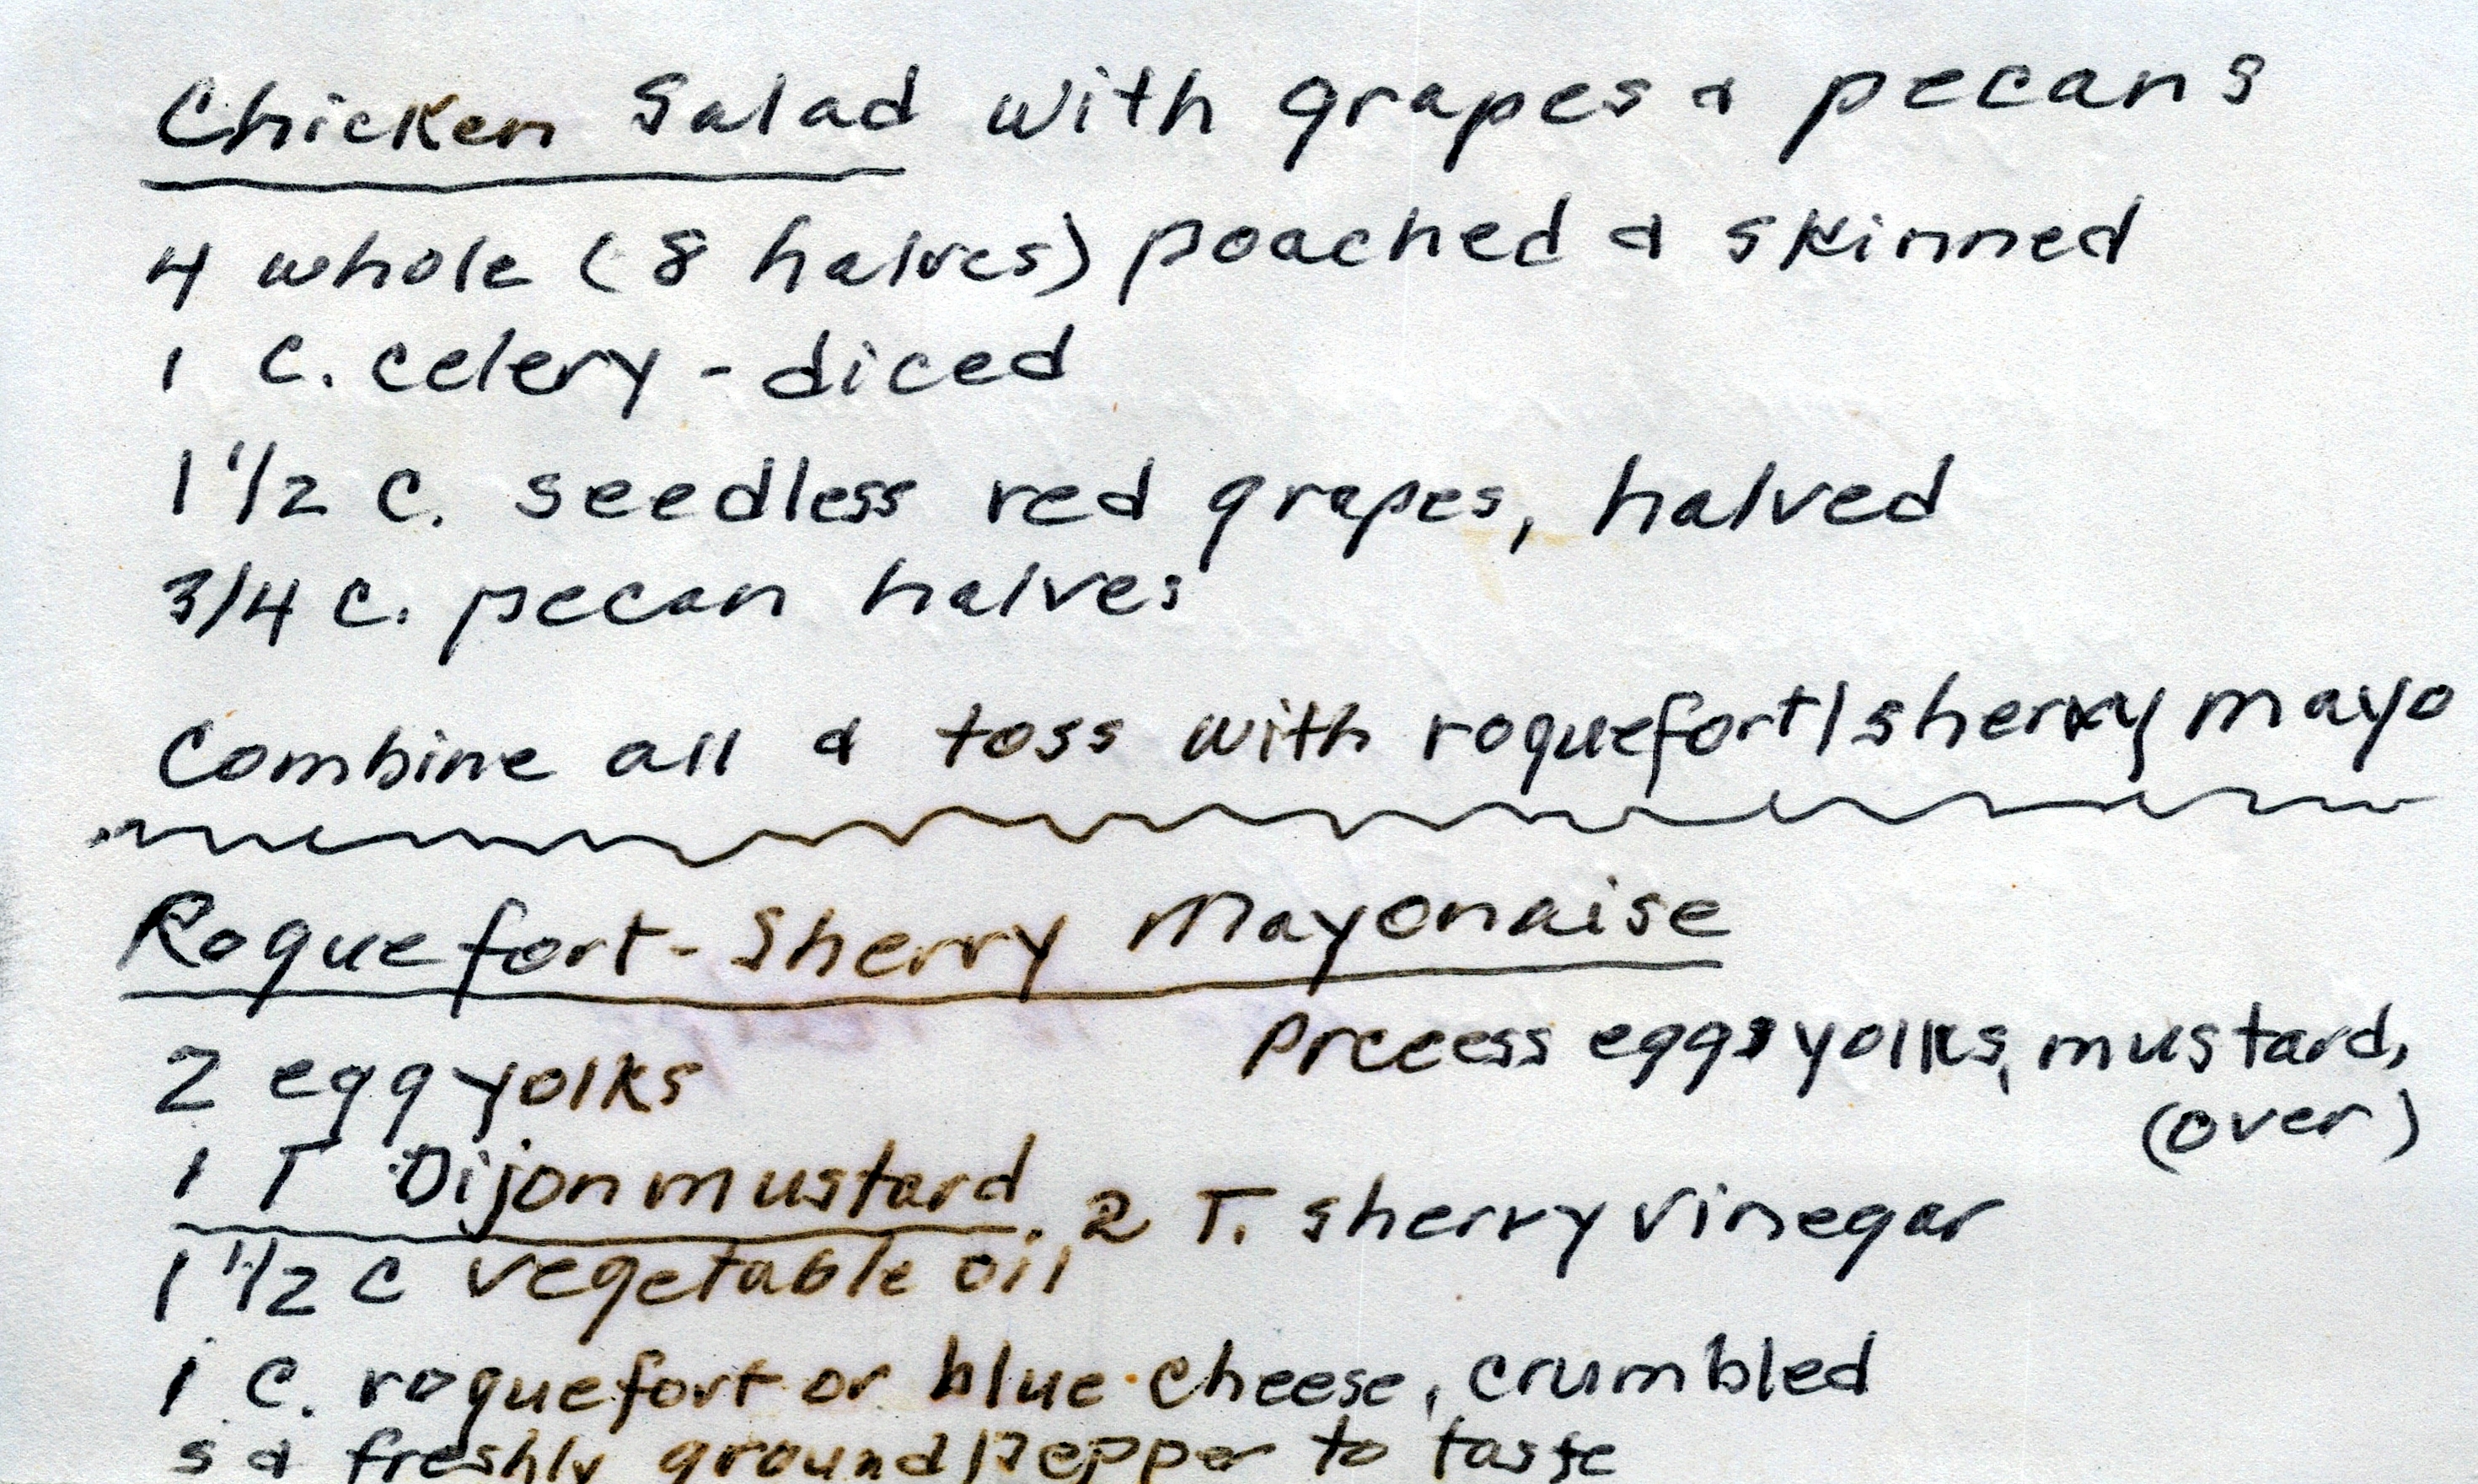 Chicken Salad with grapes & pecans
4 whole (8 halves) poached & skinned
1 C. celery - diced
1 1/2 C. seedless red grapes, halved
3/4 C. pecan halves
Combine all & toss with roquefort/sherry mayo
Roquefort-Sherry Mayonaise
Process eggs yolks, mustard,
2 egg yolks
(over)
1 T Dijon mustard, 2 T. sherry vinegar
1 1/2 C vegetable oil
1 C. roquefort or blue cheese, crumbled
s & freshly ground pepper to taste